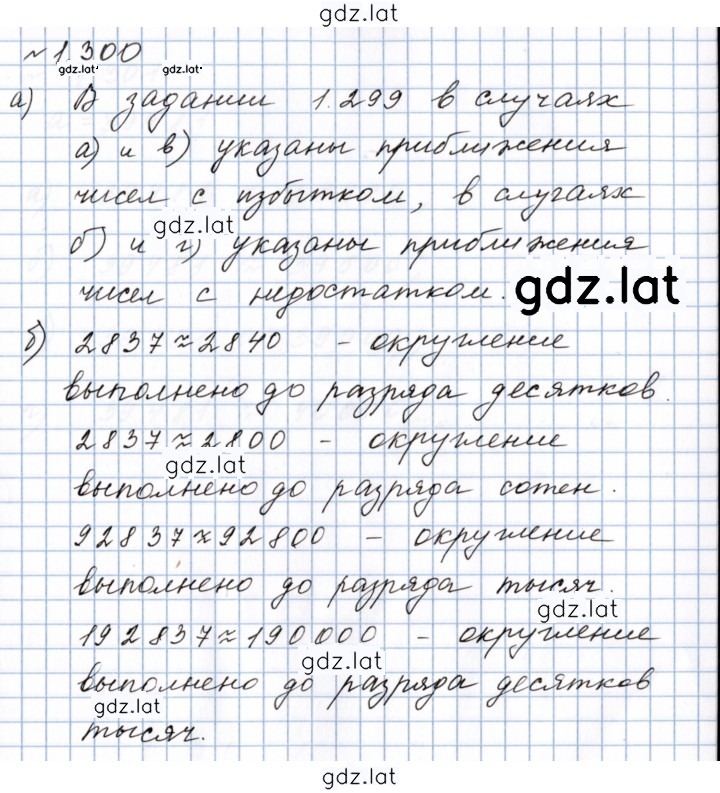 gdz.lat
№1.300
gdz.lat gdz.lat
а) В задании 1.299 в случаях
а) и в) указаны приближения
чисел с избытком, в случаях
gdz.lat
б) и г) указаны приближения
чисел с недостатком. gdz.lat
б) 2837≈2840 - округление
выполнено до разряда десятков.
2837≈2800 - округление
gdz.lat
выполнено до разряда сотен.
92837≈92800 - округление
выполнено до разряда тысяч.
gdz.lat
192837≈190000 - округление
gdz.lat
выполнено до разряда десятков
gdz.lat
тысяч.
gdz.lat